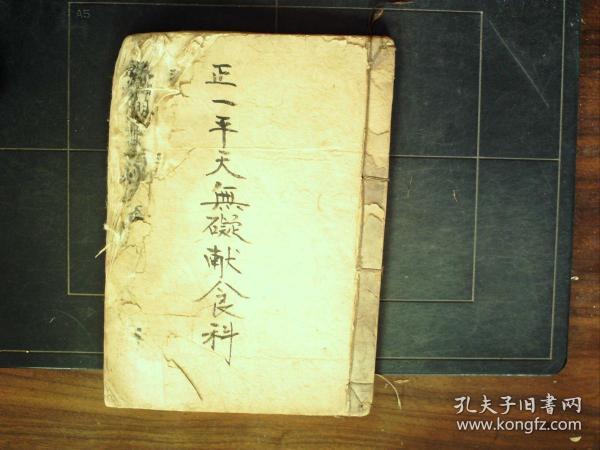 正一平天無礙献食科
A5
孔夫子旧書网
www.kongfz.com